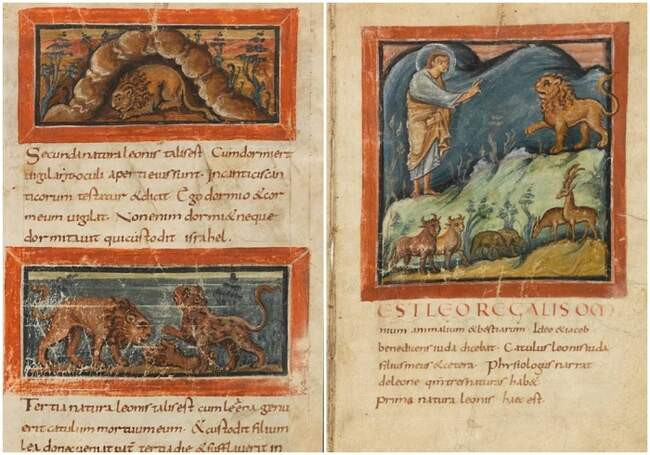 Secunda natura leonis talis est Cum dormierit
vigilant oculi aperti eius sunt. In canticis can
ticorum testatur & dicit Ego dormio & cor
meum vigilat. Non enim dormi & neque
dormitavit qui custodit israhel.
Tertia natura leonis talis est cum leena genu
erit catulum mortuum eum. & custodit filium
lea donec veniat
tertia die & sufflaverit in
EST LEO REGALIS OM
nium animalium & bestiarum. Ideo & iacob
benedicens iuda dicebat. Catulus leonis iuda
filius meus & cetera. Phisiologus narrat
de leone qm tres naturas hab&
prima natura leonis haec est.